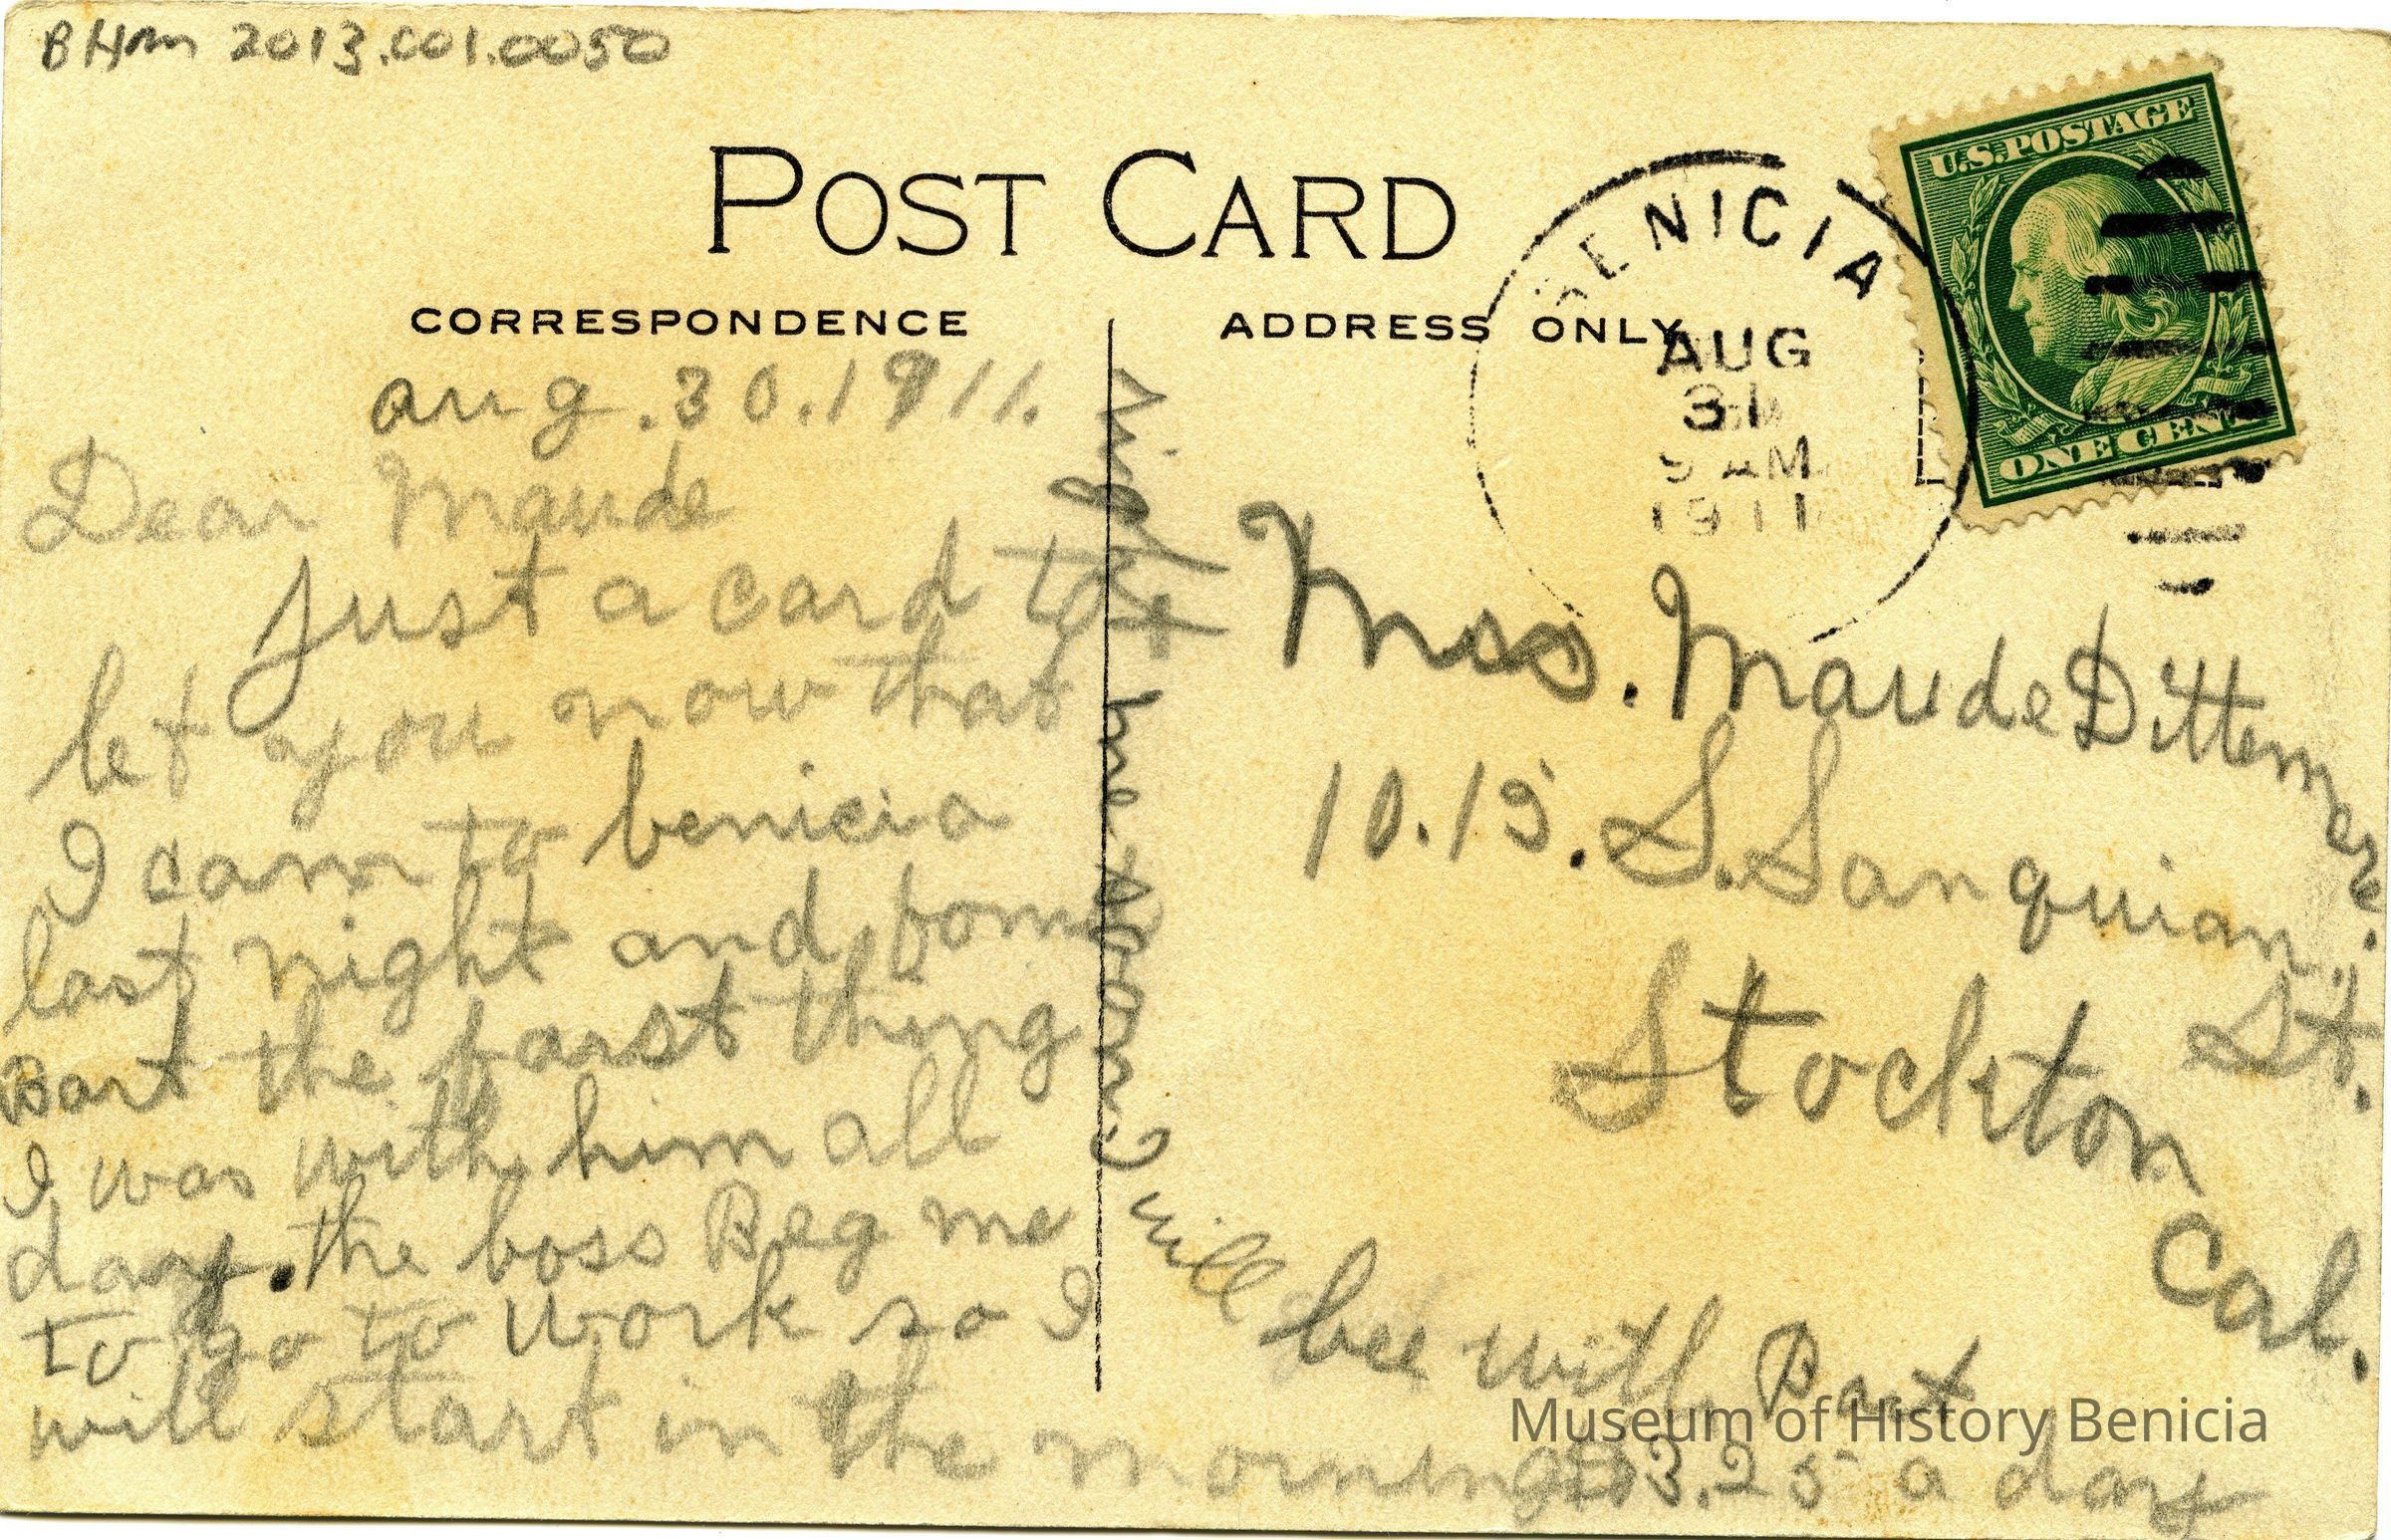 BHM 2013.001.0050
POST CARD
CORRESPONDENCE
ADDRESS ONLY
BENICIA
AUG
31
9 AM
1911
U.S. POSTAGE
ONE CENT
aug. 30. 1911.
Dear Maude
Just a card to
let you now that
I cam to benicia
last night and fom
Bart the farst thing
I was with him all
day. the boss Beg me
to go to work so I
will start in the morning 3.25 a day
I will bee with Bart
right me soon
Miss. Maude Dittemore.
10.15. S. Sanquian.
St.
Stockton
Cal.
Museum of History Benicia